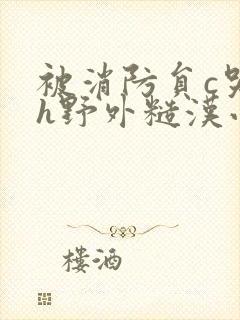 被消防员c
h野外糙汉
楼酒